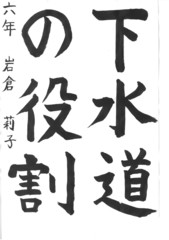 下水道
の役割
六年 岩倉 莉子